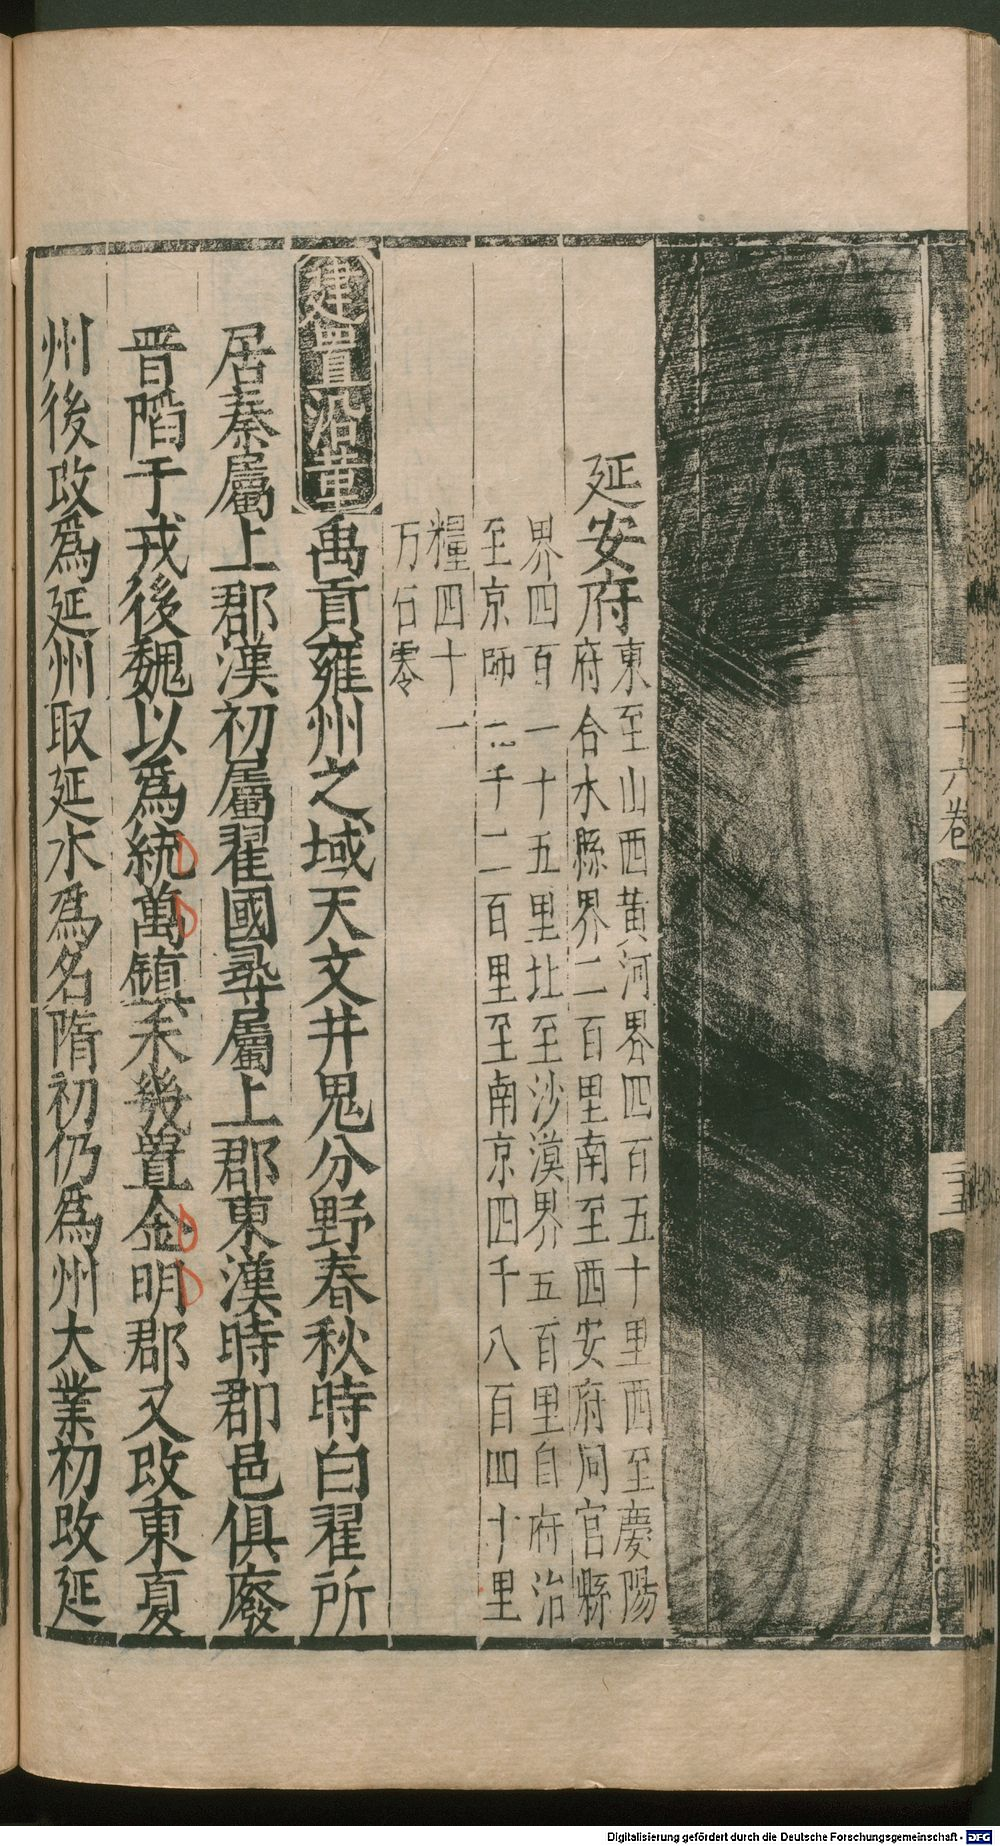 三十六卷
二十五
延安府
東至山西黃河界四百五十里西至慶陽
府合水縣界二百里南至西安府同官縣
界四百一十五里北至沙漠界五百里自府治
至京師二千二百里至南京四千八百四十里
糧四十一
万石零
建置沿革
禹貢雍州之域天文井鬼分野春秋時白翟所
居秦屬上郡漢初屬翟國尋屬上郡東漢時郡邑俱廢
晋䧟于戎後魏以爲統萬鎮未幾置金明郡又改東夏
州後改爲延州取延水爲名隋初仍爲州大業初改延
Digitalisierung gefördert durch die Deutsche Forschungsgemeinschaft - DFG